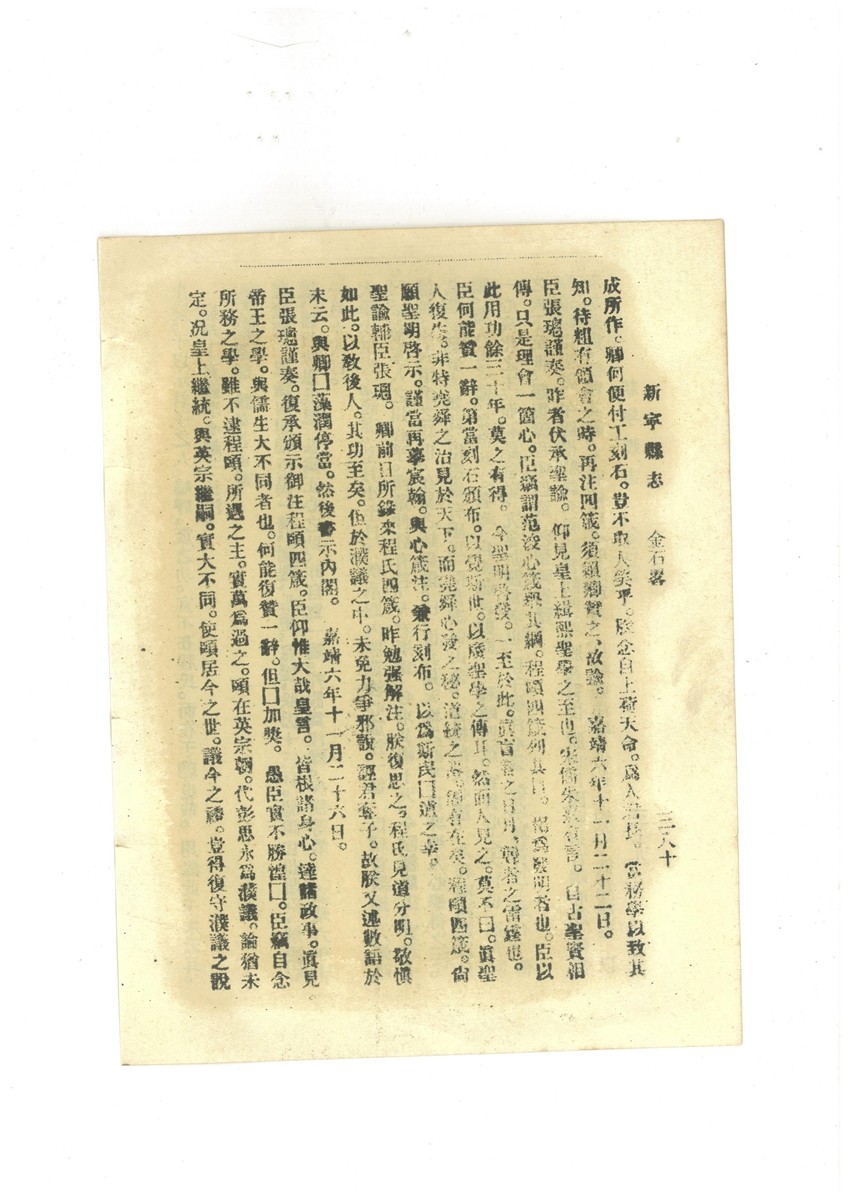 新寧縣志　金石畧　三八十
成所作。卿何便付工刻石。豈不取人笑乎。朕念自上荷天命。為人君長。當務學以致其
知。待粗有領會之時。再注四箴。須賴卿贊之、故諭。　嘉靖六年十一月二十二日。
臣張璁謹奏。昨者伏承聖諭。仰見皇上緝熙聖學之至也。宋儒朱熹有言。自古聖賢相
傳。只是理會一箇心。臣竊謂范浚心箴舉其綱。程頤四箴列其目。　　發明者也。臣以
此用功餘三十年。莫之有得。今聖明　發。一至於此。真盲者之日月。聾者之雷霆也。
臣何能贊一辭。第當刻石頒布。以覺斯世。以廣聖學之傳耳。然而人見之。莫不曰。真聖
人復生。非特堯舜之治見於天下。而堯舜心發之秘。道統之　　有在矣。程頤四箴。尙
願聖明啓示。謹當再摹宸翰。與心箴注。兼行刻布。以為斯民囗道之幸。
聖諭輔臣張璁。卿前日所錄來程氏四箴。昨勉强解注。朕復思之。程氏見道分明。敬慎
如此。以致後人。其功至矣。但於濮議之中。未免力爭邪說。誣君奪子。故朕又述數語於
末云。與卿囗藻潤停當。然後書示內閣。　嘉靖六年十一月二十六日。
臣張璁謹奏。復承頒示御注程頤四箴。臣仰惟大哉皇言。皆根諸身心。達諸政事。真見
帝王之學。與儒生大不同者也。何能復贊一辭。但囗加獎。愚臣實不勝惶囗。臣竊自念
所務之學。雖不逮程頤。所遇之主。實萬為過之。頤在英宗朝。代彭思永為濮議。論猶未
定。况皇上繼統。與英宗繼嗣。實大不同。使頤居今之世。議今之禮。豈得復守濮議之說